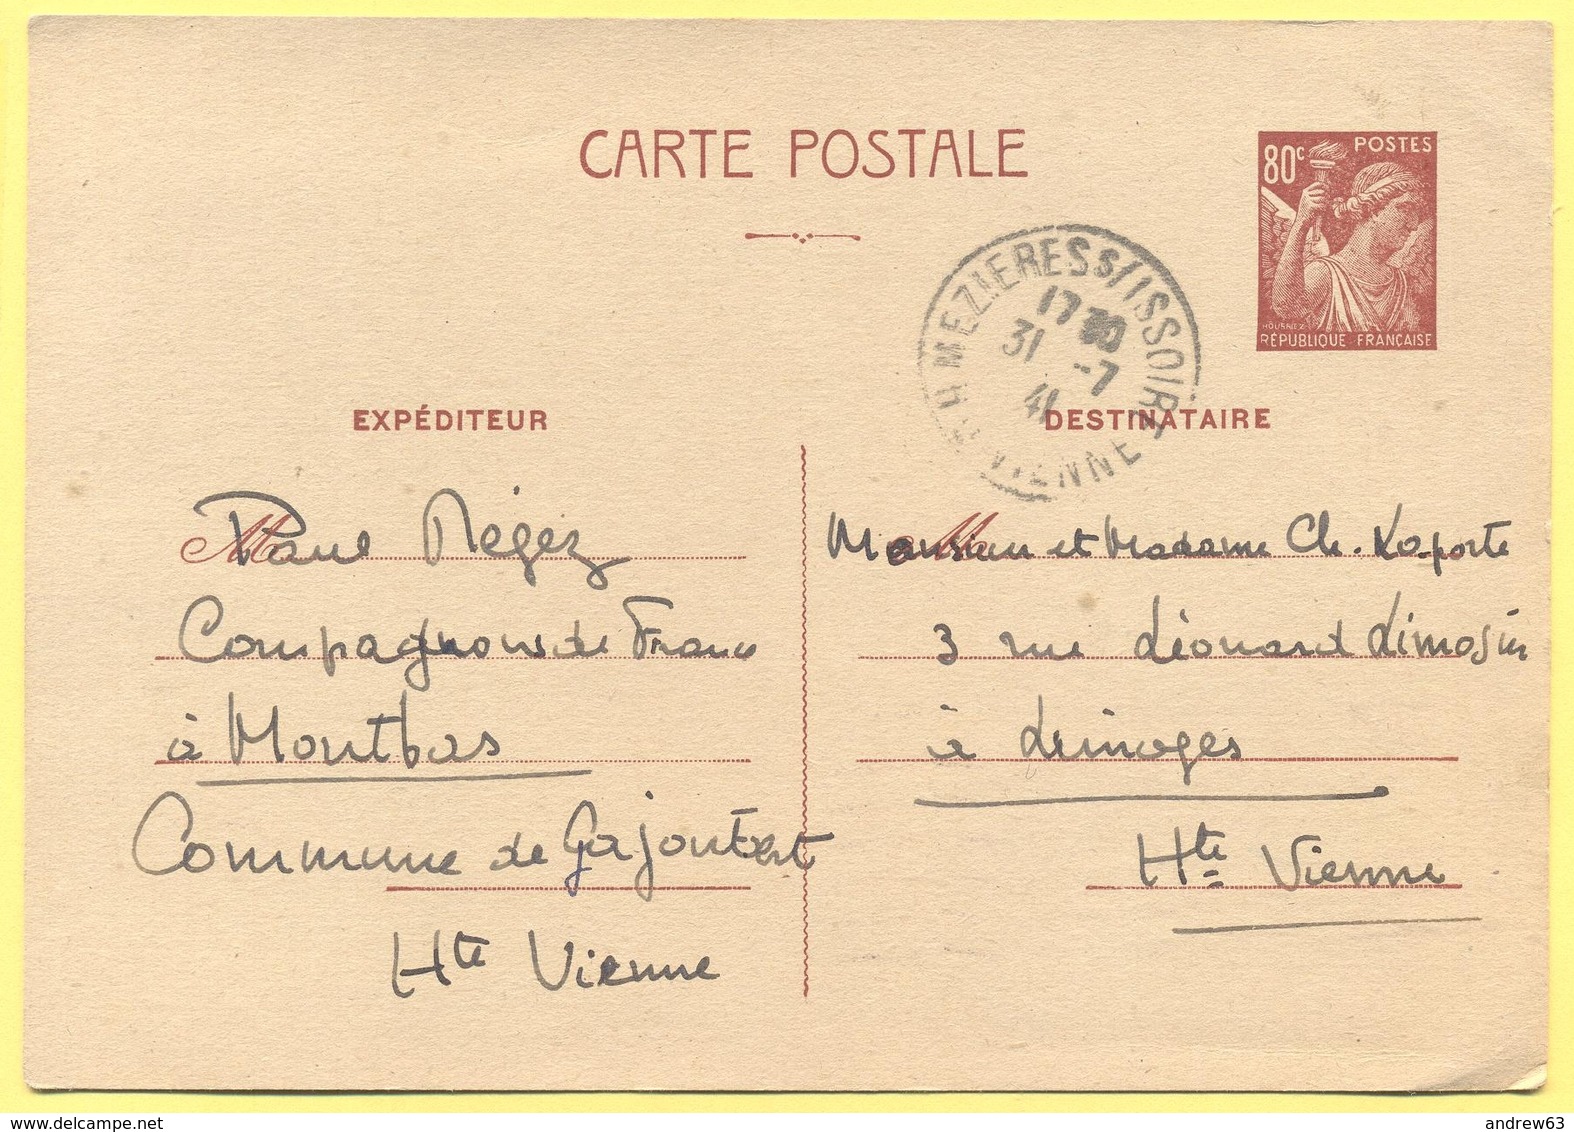 CARTE POSTALE
80c POSTES
HOURRIEZ
RÉPUBLIQUE FRANÇAISE
MEZIERES S/ISSOIRE
17 30
31 -7
41
HTE VIENNE
EXPÉDITEUR
M
Paul Négez
Compagnons de France
à Montbas
Commune de Gajoubert
Hte Vienne
DESTINATAIRE
M
Monsieur et Madame Ch. Laporte
3 rue Léonard Limosin
à Limoges
Hte Vienne
andrew63